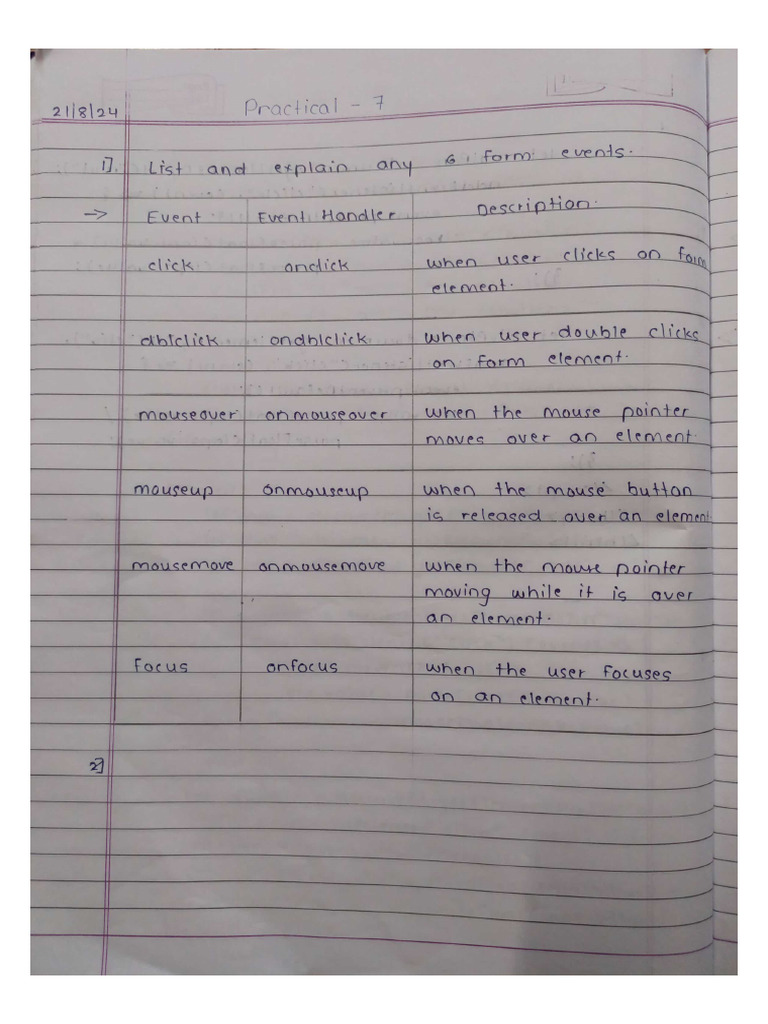 21/8/24 Practical - 7
1] List and explain any 6 form events.
-> Event Event Handler Description.
click onclick when user clicks on form
element.
dblclick ondblclick when user double clicks
on form element.
mouseover onmouseover when the mouse pointer
moves over an element.
mouseup onmouseup when the mouse button
is released over an element
mousemove onmousemove when the mouse pointer
moving while it is over
an element.
focus onfocus when the user focuses
on an element.
2]